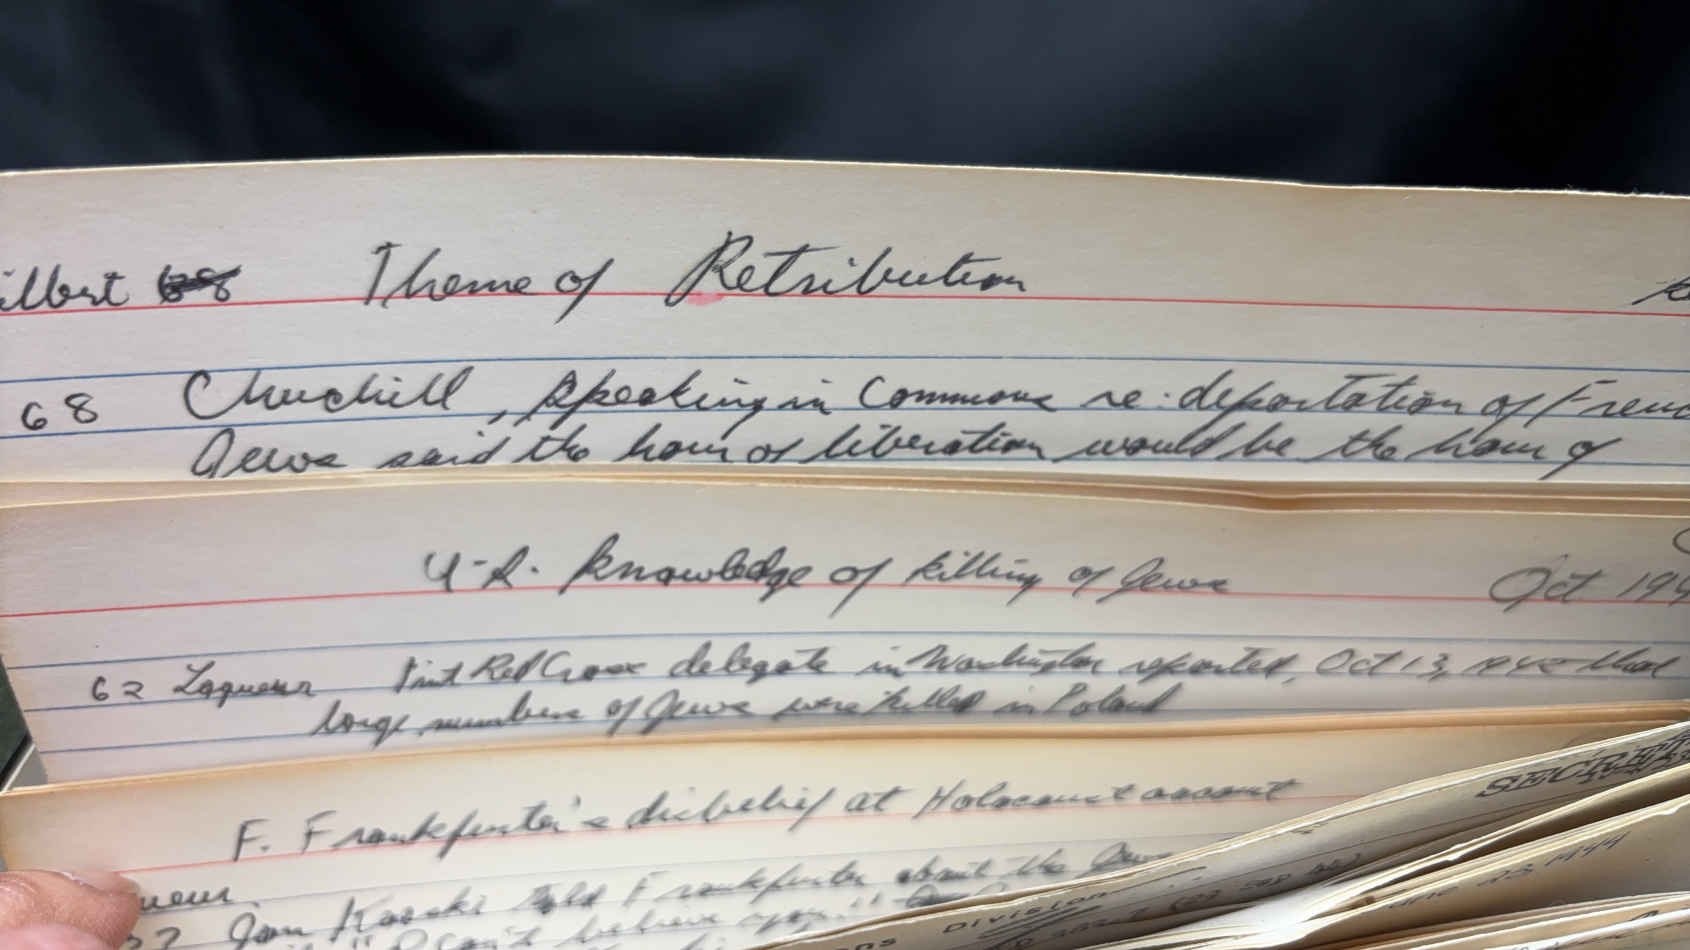 ilbert Theme of Retribution
68 Churchill, speaking in Commons re: deportation of Frenc
Jews said the hour of liberation would be the hour of
U.S. knowledge of killing of Jews Oct 194
62 Laqueur Int Red Cross delegate in Washington reported, Oct 13, 1942 that
large numbers of Jews were killed in Poland
F. Frankfurter's disbelief at Holocaust account
ueur.
Jan Karski told Frankfurter about the Jews
"I can't believe you."
SECRET
ns Division
June 23, 1944